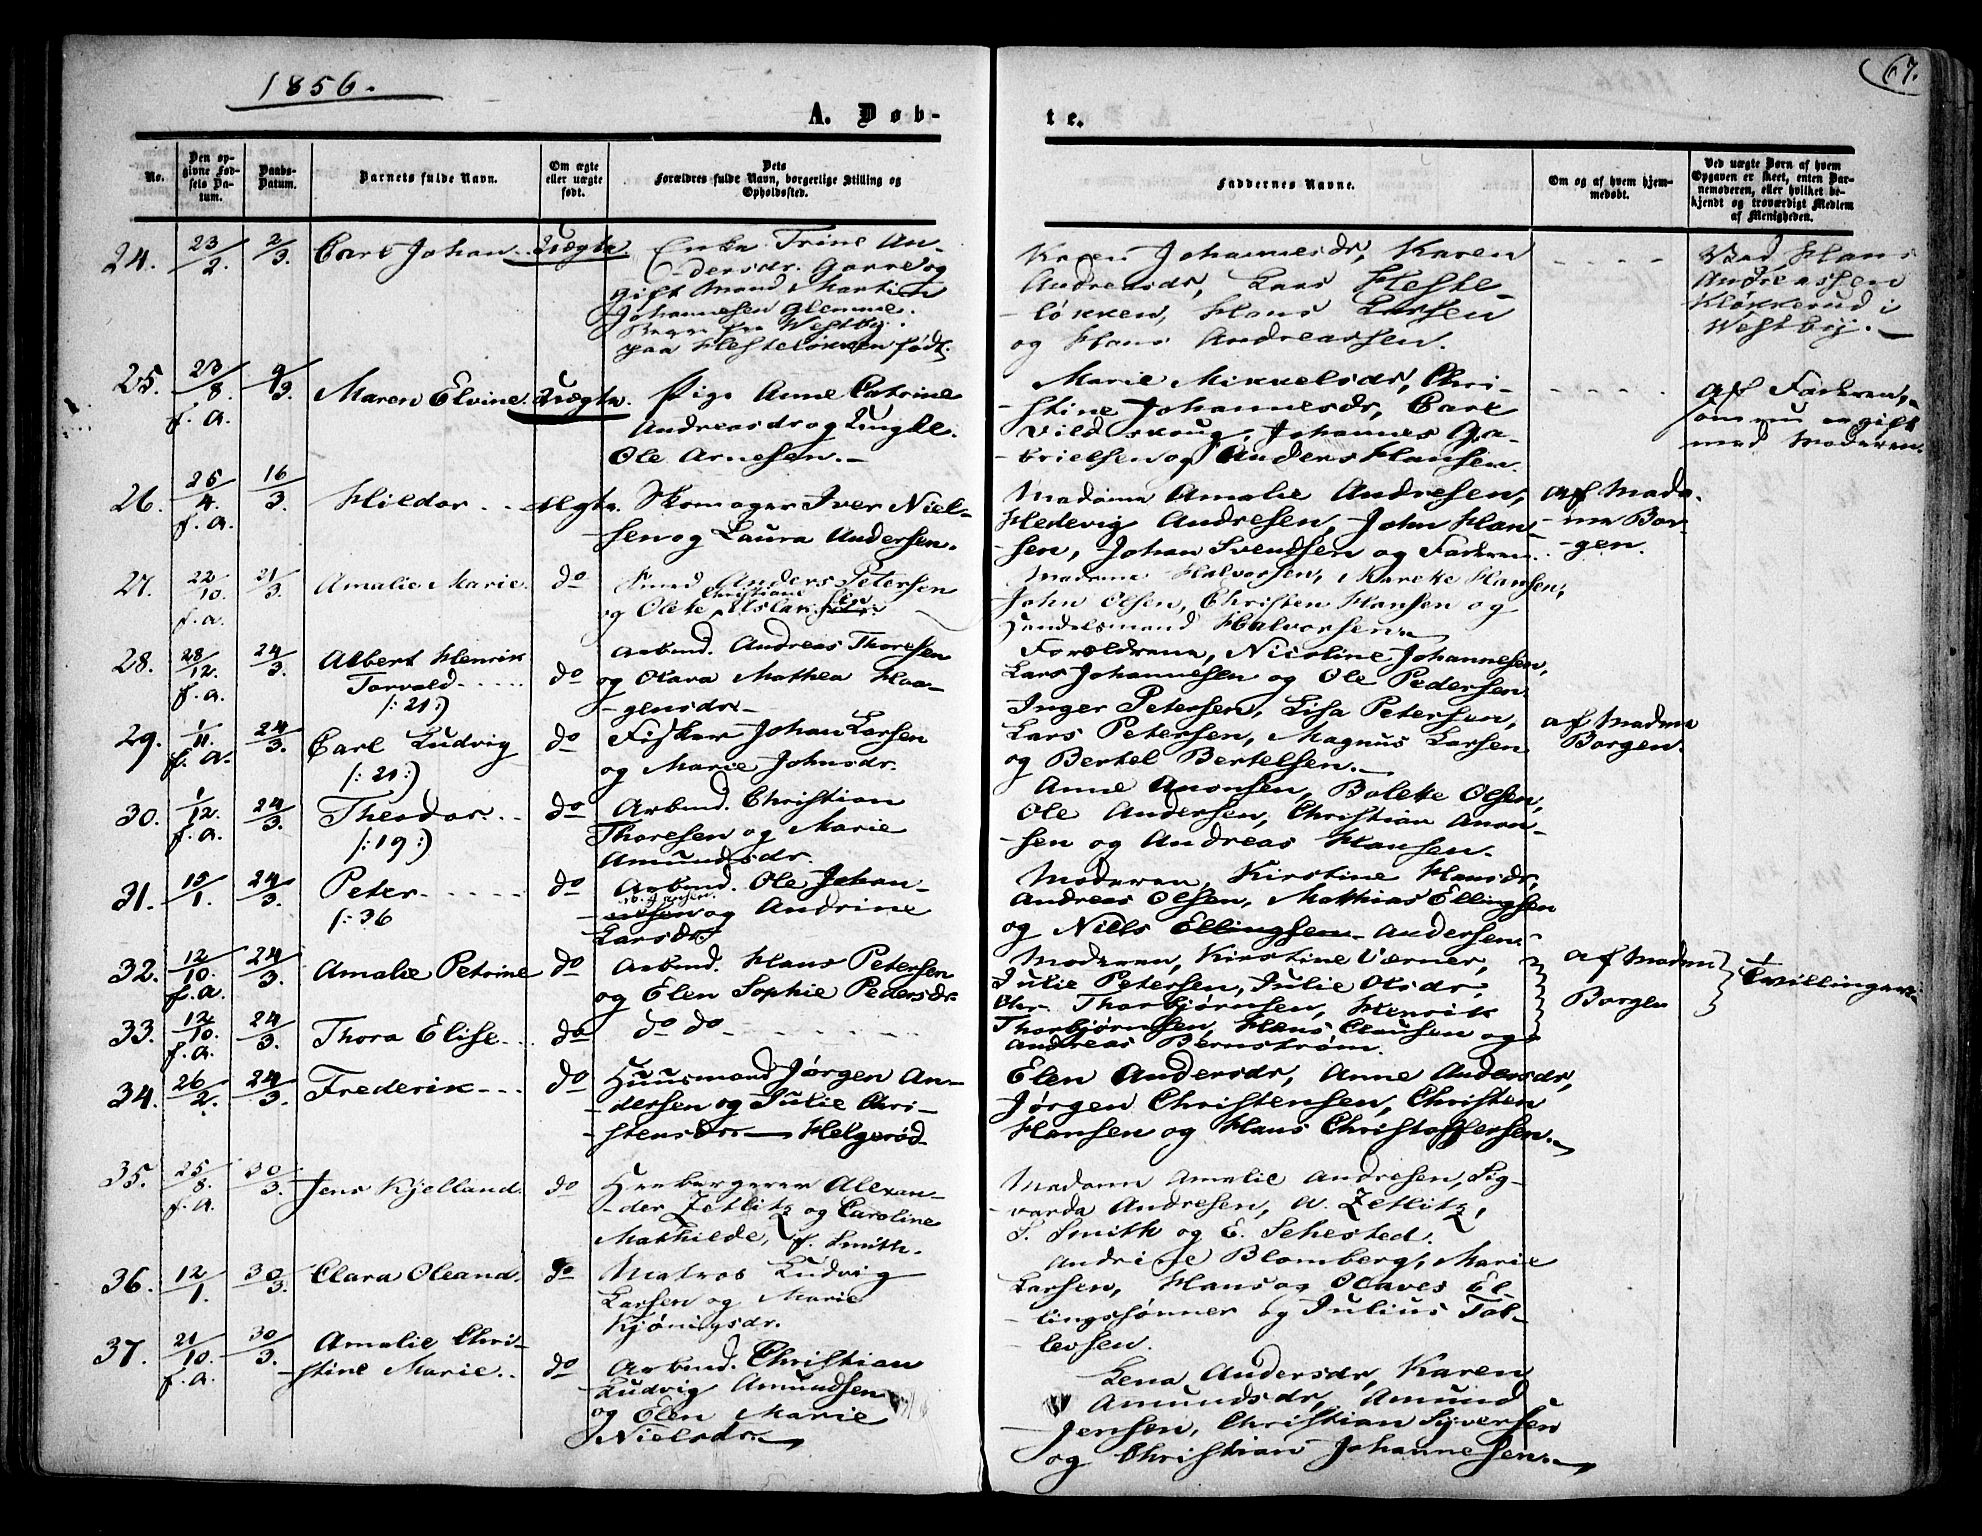 1856.
67.
A. Døb-
te.
No.
Den op-
givne Fød-
sels Da-
tum.
Daabs-
Datum.
Barnets fulde Navn.
Om ægte
eller uægte
født.
Dets
Forældres fulde Navn, borgerlige Stilling og
Opholdssted.
Faddernes Navne.
Om og af hvem hjem-
medøbt.
Ved uægte Børn af hvem
Opgaven er skeet, enten Bar-
nemoderen, eller hvilket be-
kjendt og troværdigt Medlem
af Menigheden.
24. 23/2. 2/3. Carl Johan. Uægte. Enke Trine An-
dersdr. og
gift Mand Martin
Johannesen Glemme.
Westby.
paa Hesteløkken født.
Karen Johannesdr, Karen
Andreasdr, Lars Heste-
løkken, Hans Larsen
og Hans Andreassen.
Ved Hans
Andreassen
Kløkkerud i
Westby.
25. 23/8. f.a. 9/3. Maren Elvine. Uægte. Pige Anne Catrine
Andreasdr og Ungkl.
Ole Arnesen.
Marie Mikkelsdr, Chri-
stine Johannesdr, Carl
Vildskoug, Johannes Ga-
brielsen og Anders Hansen.
af Faderen,
som nu er gift
med Moderen.
26. 25/4. f.a. 16/3. Hildar. Ægte. Skomager Iver Niel-
sen og Laura Andersen.
Madame Amalie Andresen,
Hedevig Andresen, John Han-
sen, Johan Svendsen og Faderen.
af Mada-
me Bor-
gen.
27. 22/10. f.a. 21/3. Amalie Marie. do Smed Anders Petersen
Christiane
og Olete Aslaksen
Madame Halvorsen, Marete Hansen,
John Olsen, Christen Hansen og
Handelsmand Halvorsen.
28. 28/12. f.a. 24/3. Albert Henrik
Torvald
/: 21 :/
do Arbmd. Andreas Thoresen
og Olara Mathea Haa-
gensdr.
Forældrene, Nicoline Johannesen,
Lars Johannesen og Ole Pedersen
29. 1/11. f.a. 24/3. Carl Ludvig
/: 21 :/
do Fisker Johan Larsen
og Marie Johnsdr.
Inger Petersen, Lisa Petersen,
Lars Petersen, Magnus Larsen
og Bertel Bertelsen.
af Madme
Borgen.
30. 1/12. f.a. 24/3. Theodor
/: 19 :/
do Arbmd. Christian
Thoresen og Marie
Amundsdr.
Anne Aronsen, Bolete Olsen,
Ole Andersen, Christian Aron-
sen og Andreas Hansen.
31. 15/1. 24/3. Peter
/: 36
do Arbmd. Ole Johan-
nesen og Andrine
Larsdr.
Moderen, Kirstine Hansdr,
Andreas Olsen, Mathias Ellingsen
og Niels Ellingsen Andersen.
32. 12/10. f.a. 24/3. Amalie Petrine do Arbmd. Hans Petersen
og Elen Sophie Pedersdr.
Moderen, Kirstine Værner,
Julie Petersen, Julie Olsdr,
Thorbjørnsen, Henrik
Thorbjørnsen, Hans Clausen og
Andreas Bernstrøm.
af Madm
Borgen
Tvillinger
33. 12/10. f.a. 24/3. Thora Elise do do do
34. 26/2. 24/3. Frederik do Huusmand Jørgen An-
dersen og Julie Chri-
stensdr. Helgerød
Elen Andersdr, Anne Andersdr,
Jørgen Christensen, Christen
Hansen og Hans Christoffersen.
35. 25/8. f.a. 30/3. Jens Kjelland. do Herbergerer Alexan-
der Zetlitz og Caroline
Mathilde, f. Smith.
Madam Amalie Andresen, Sig-
varda Andresen, W. Zetlitz,
S. Smith og E. Sehested.
36. 12/1. 30/3. Clara Oleand. do Matros Ludvig
Larsen og Marie
Kjønigsdr.
Andrise Blomberg, Marie
Larsen, Hans og Olaves El-
lingssønner og Julius Tol-
levsen.
37. 21/10. f.a. 30/3. Amalie Chri-
stine Marie. do Arbmd. Christian
Ludvig Amundsen
og Elen Marie
Nielsdr.
Lena Andersdr, Karen
Amundsdr, Amund
Jensen, Christian Syversen
og Christian Johannesen.